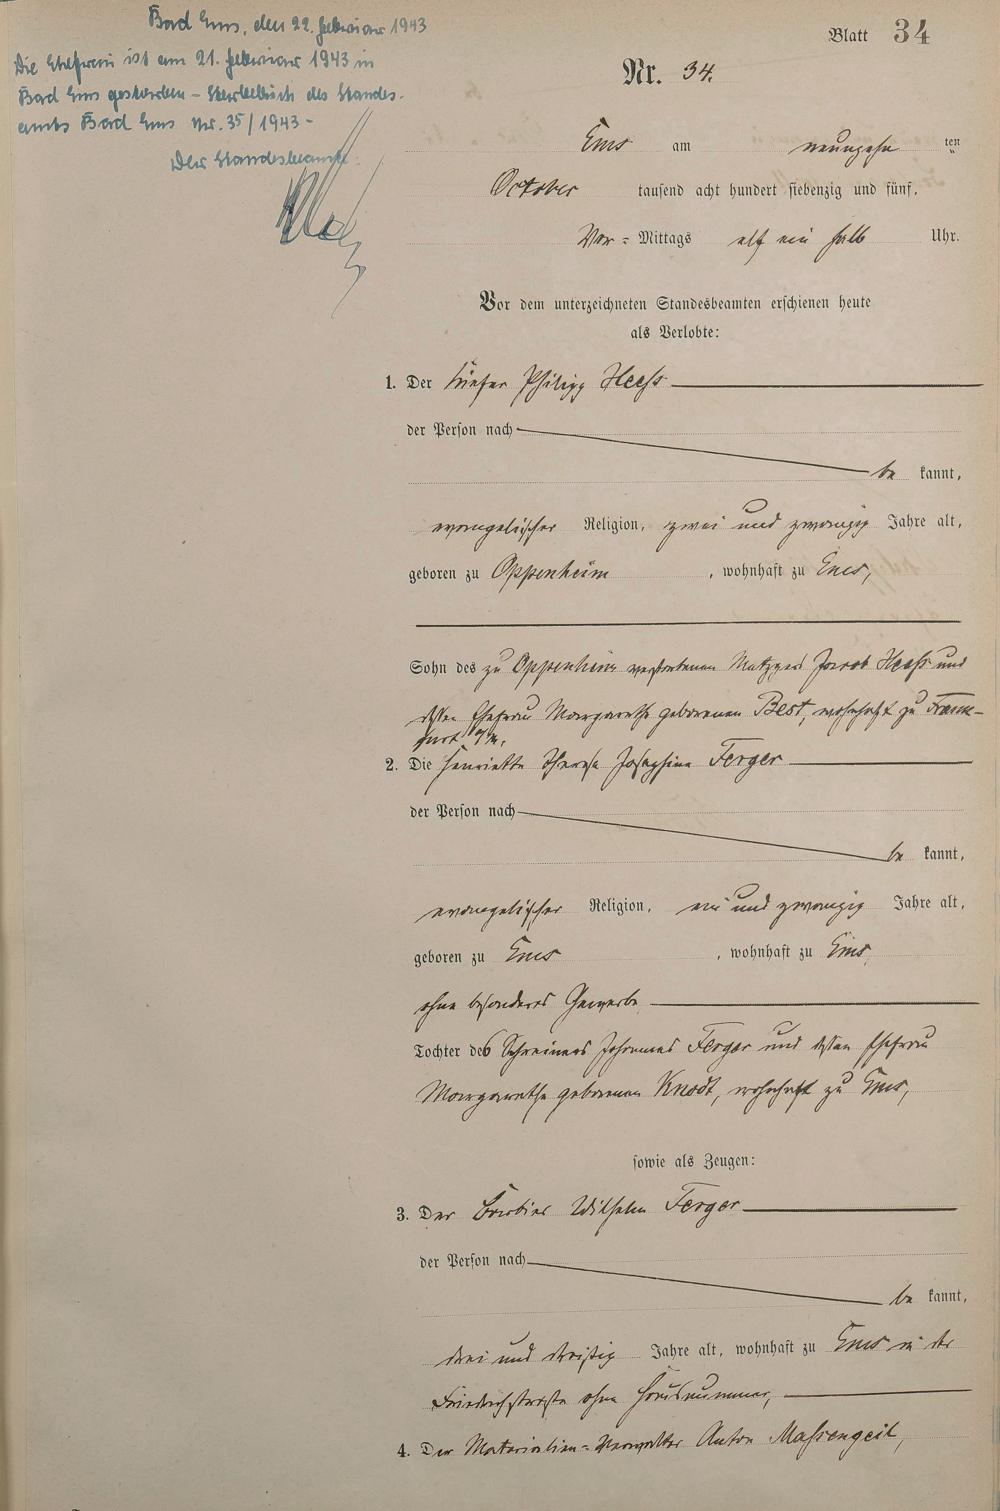 Bad Ems, den 22. Februar 1943
Die Ehefrau ist am 21. Februar 1943 in
Bad Ems gestorben – Sterbebuch des Standes-
amts Bad Ems Nr. 35/1943 –
Der Standesbeamte:
Blatt 34
Nr. 34.
Ems am neunzehn ten
October tausend acht hundert siebenzig und fünf,
Vor = Mittags elf ein halb Uhr.
Vor dem unterzeichneten Standesbeamten erschienen heute
als Verlobte:
1. Der Küfer Philipp Heeß
der Person nach
be kannt,
evangelischer Religion, zwei und zwanzig Jahre alt,
geboren zu Oppenheim, wohnhaft zu Ems,
Sohn des zu Oppenheim verstorbenen Metzgers Jacob Heeß und
dessen Ehefrau Margarethe geborenen Best, wohnhaft zu Frank-
furt a/M.,
2. Die Henriette Therese Josephine Ferger
der Person nach
be kannt,
evangelischer Religion, ein und zwanzig Jahre alt,
geboren zu Ems, wohnhaft zu Ems,
ohne besonderes Gewerbe
Tochter des Schreiners Johannes Ferger und dessen Ehefrau
Margarethe geborenen Knodt, wohnhaft zu Ems,
sowie als Zeugen:
3. Der Barbier Wilhelm Ferger
der Person nach
be kannt,
drei und dreißig Jahre alt, wohnhaft zu Ems in der
Friedrichstraße ohne Hausnummer,
4. Der Materialien-Verwalter Anton Massengeil,